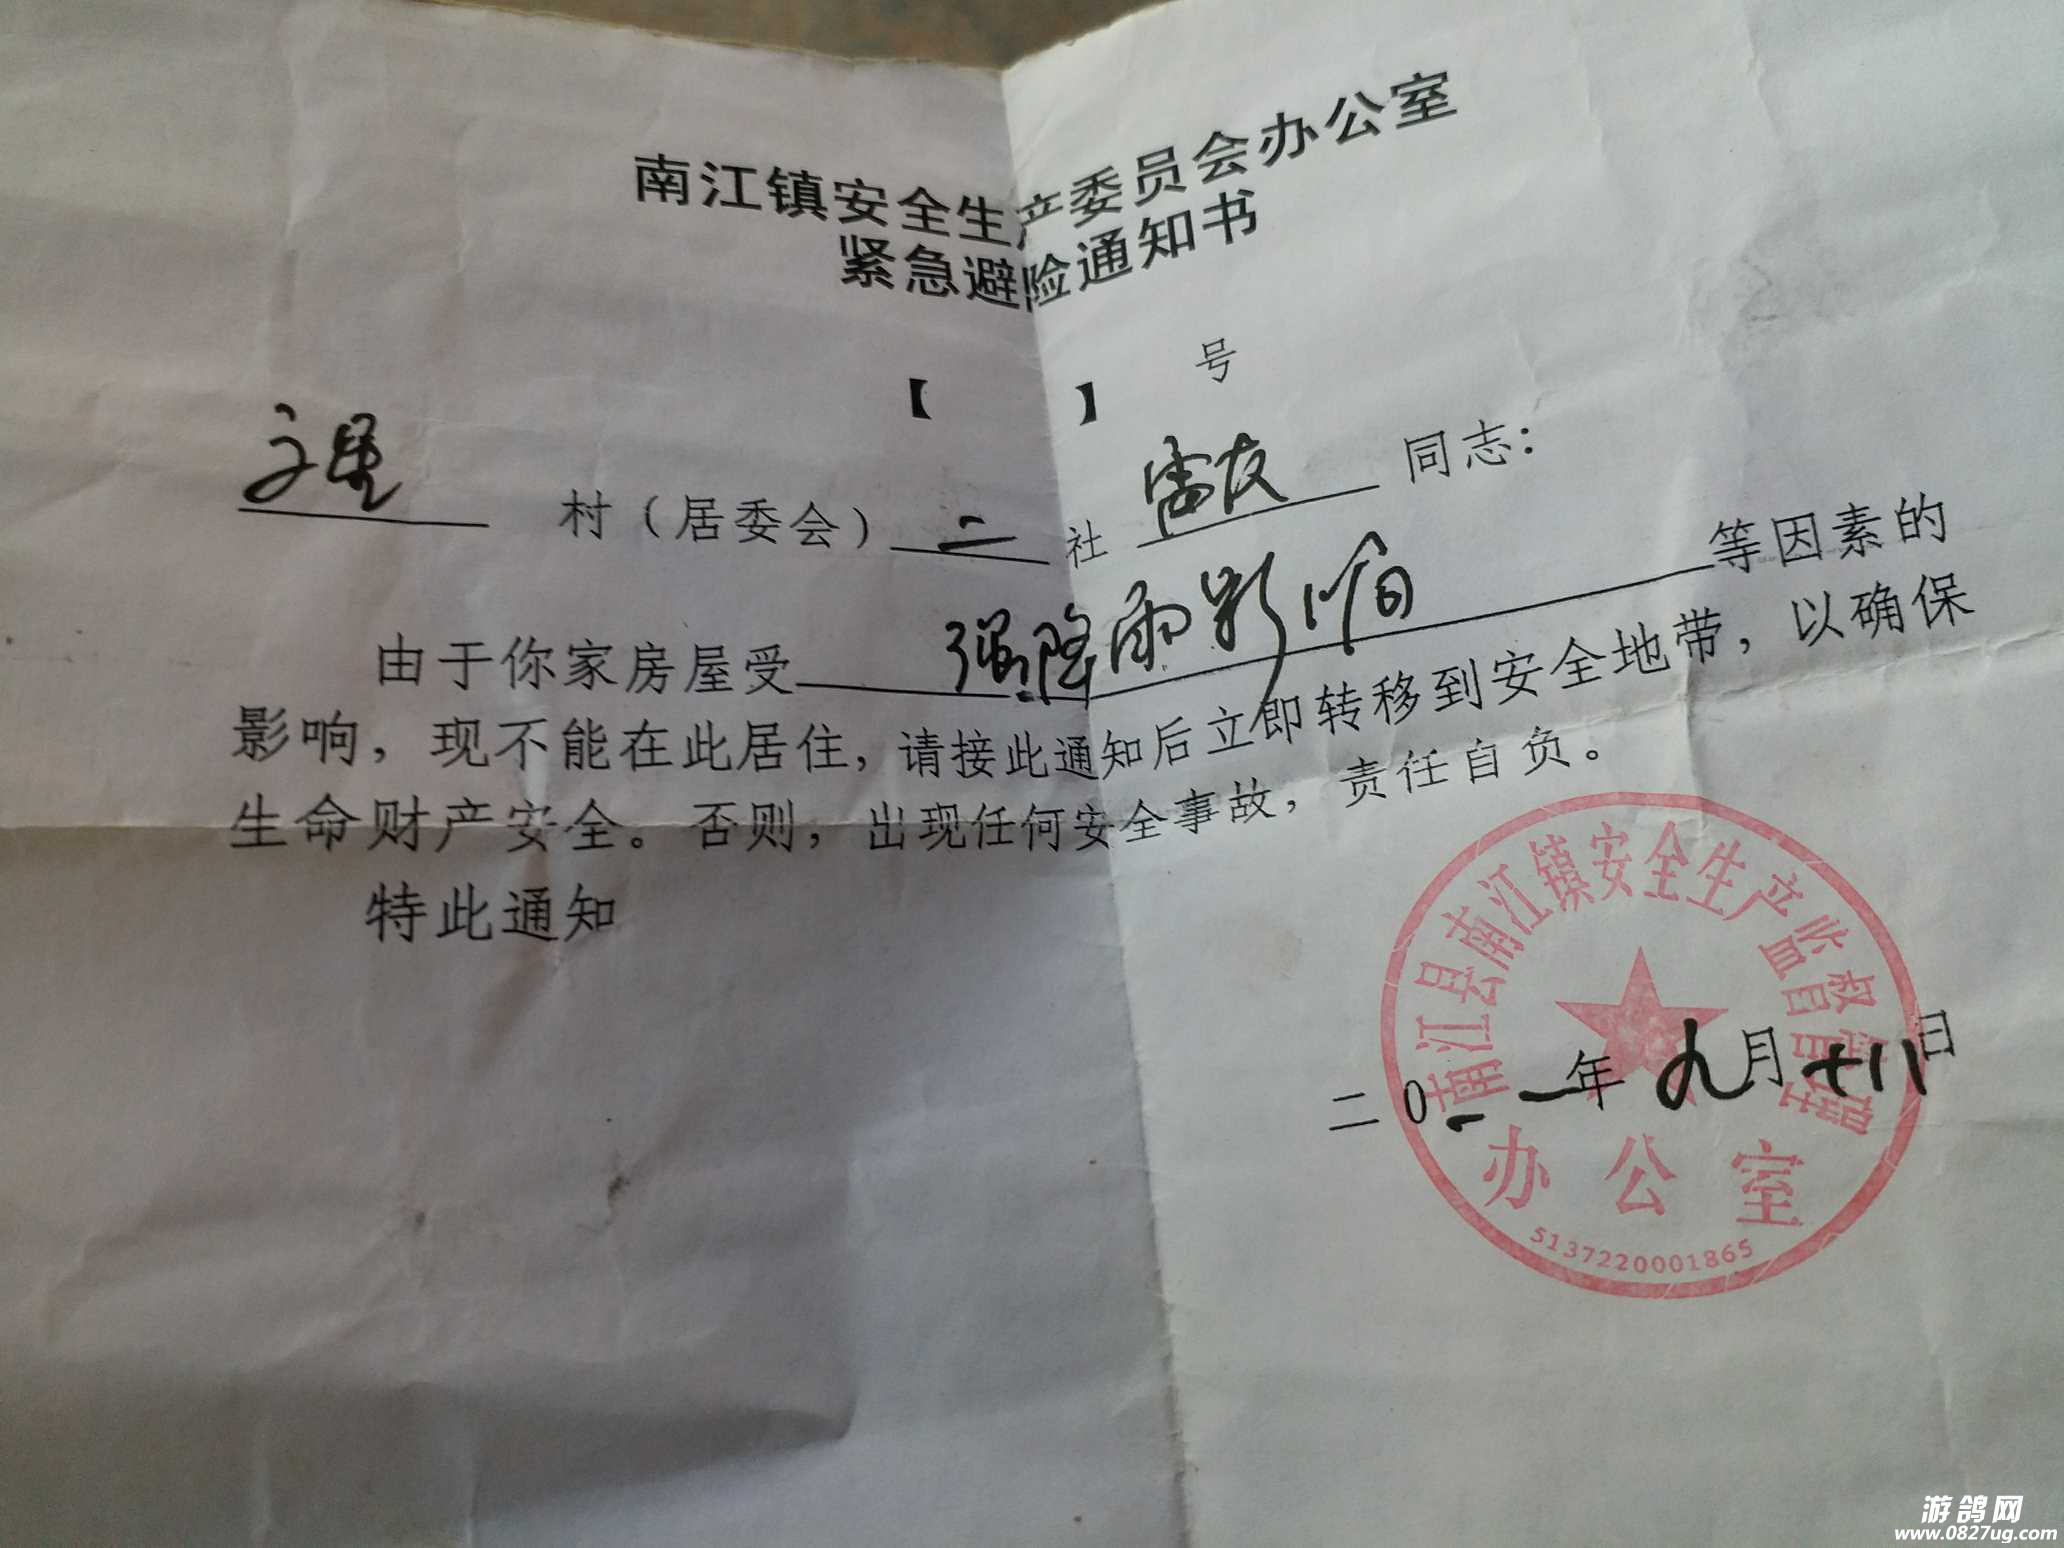 南江镇安全生产委员会办公室
紧急避险通知书
【 】 号
村（居委会）二社 雷友 同志：
由于你家房屋受 强降雨影响 等因素的
影响，现不能在此居住，请接此通知后立即转移到安全地带，以确保
生命财产安全。否则，出现任何安全事故，责任自负。
特此通知
南江县南江镇安全生产监督管理
二〇二一年九月十八日
办公室
5137220001865
游鸽网
www.0827ug.com